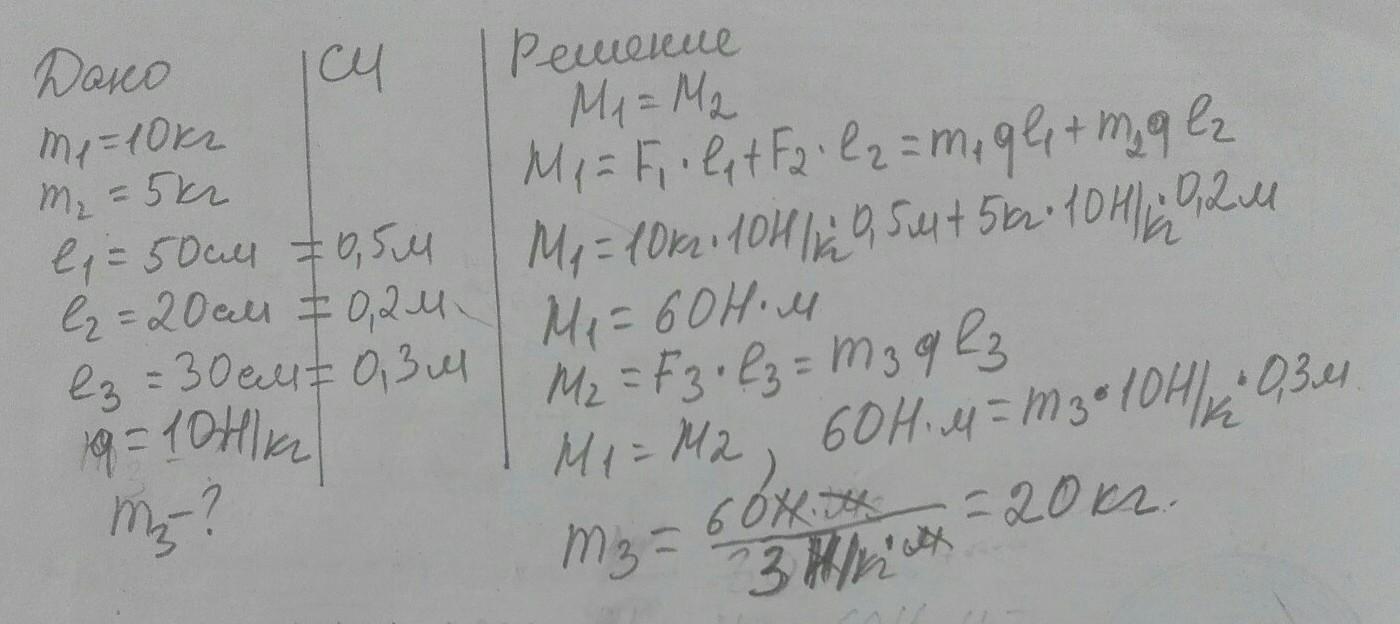 Дано
m₁=10кг
m₂=5кг
l₁=50см
l₂=20см
l₃=30см
g=10Н/кг
m₃-?
СИ
=0,5м
=0,2м
=0,3м
Решение
M₁=M₂
M₁=F₁·l₁+F₂·l₂=m₁gl₁+m₂gl₂
M₁=10кг·10Н/кг·0,5м+5кг·10Н/кг·0,2м
M₁=60Н·м
M₂=F₃·l₃=m₃gl₃
M₁=M₂, 60Н·м=m₃·10Н/кг·0,3м
m₃=60Н·м/3Н/кг·м=20кг.